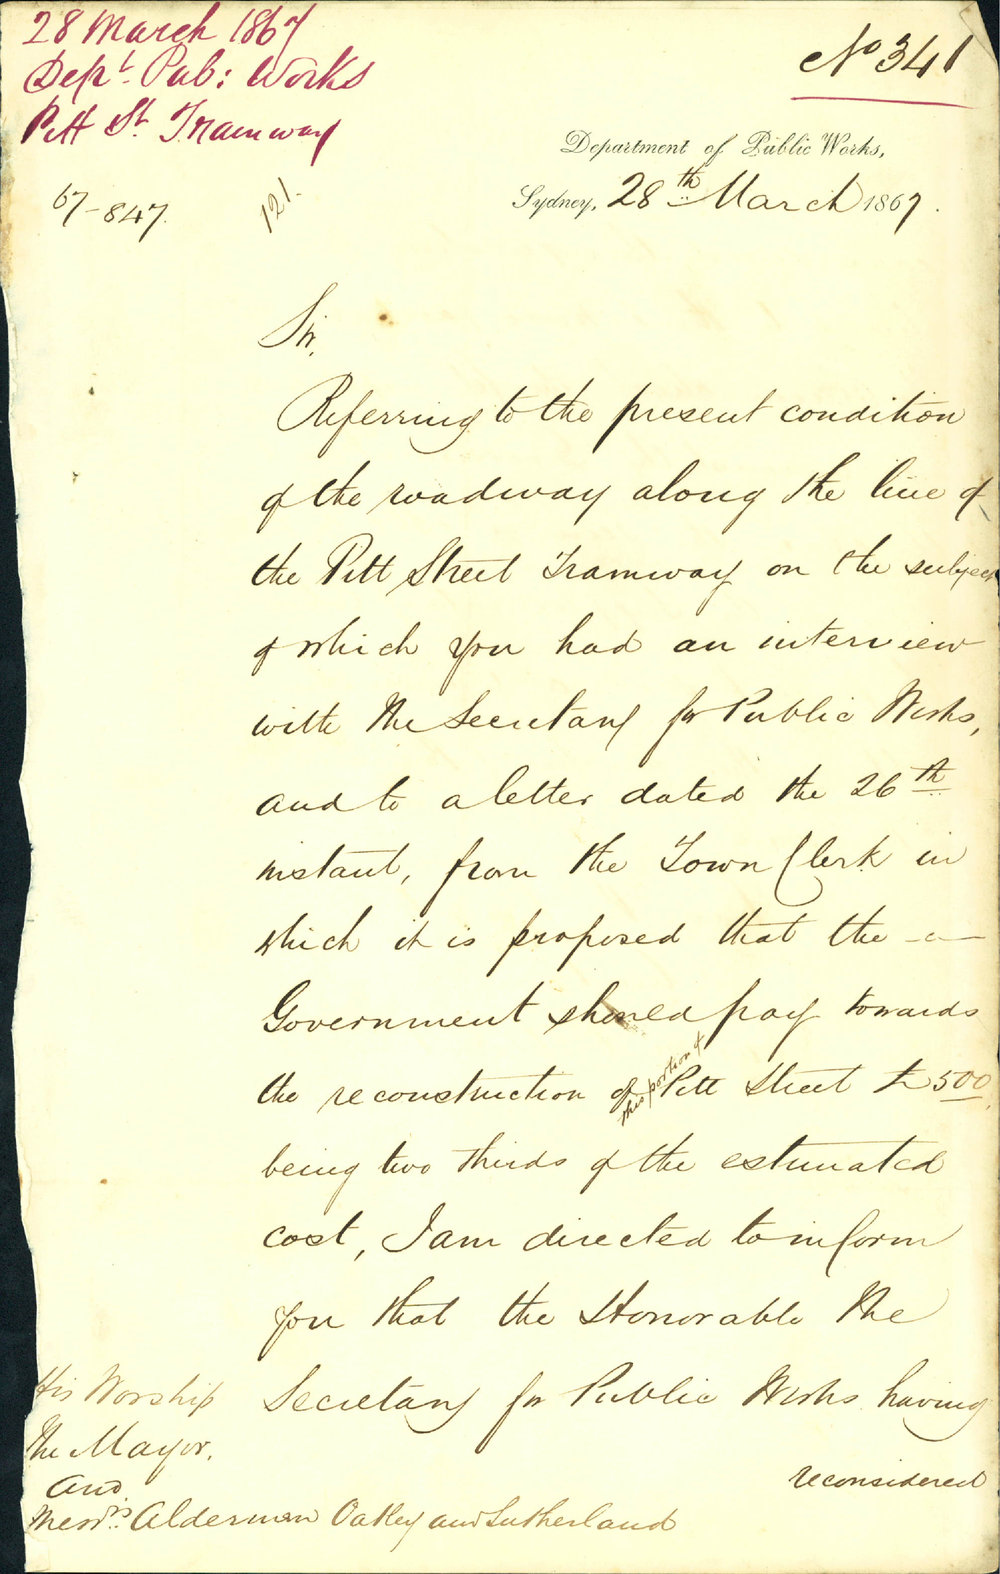 28 March 1867
Dept. Pub: Works
Pitt St. Tramway
No 341
Department of Public Works,
67-847.
121.
Sydney, 28th March 1867.
Sir,
Referring to the present condition
of the roadway along the line of
the Pitt Street Tramway on the subject
of which you had an interview
with the Secretary for Public Works,
and to a letter dated the 26th
instant, from the Town Clerk in
which it is proposed that the
Government should pay towards
this portion of
the reconstruction of Pitt Street £500
being two thirds of the estimated
cost, I am directed to inform
you that the Honorable the
Secretary for Public Works having
reconsidered
His Worship
The Mayor.
and
Messrs. Alderman Oatley and Sutherland